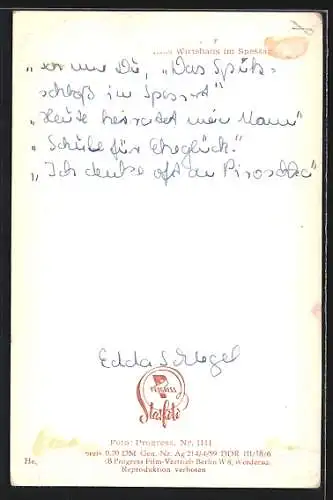 Wirtshaus im Spessart
„ nur Du, „Das Spuk-
schloß im Spessart"
„Heute heiratet mein Mann"
„Schule für Eheglück."
„Ich denke oft an Piroschka"
Edda Schlegel
PROGRESS
Starfoto
Foto: Progress, Nr. 1111
preis 0,20 DM Gen.-Nr. Ag 214/4/59 DDR III/18/6
He, (B Progress Film-Vertrieb Berlin W 8,
Reproduktion verboten